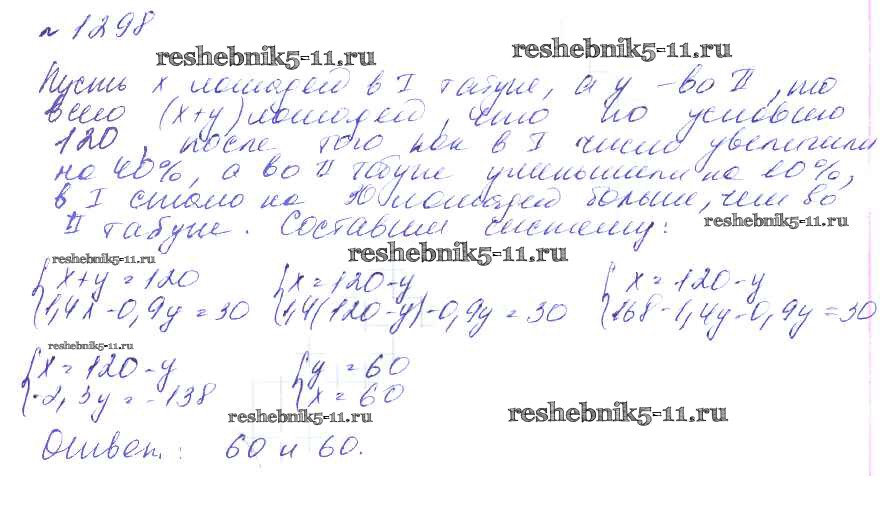 № 1298
reshebnik5-11.ru reshebnik5-11.ru
Пусть x лошадей в I табуне, а y – во II, то
всего (x+y) лошадей, что по условию
120, после того как в I число увеличили
на 40%, а во II табуне уменьшили на 10%,
в I стало на 30 лошадей больше, чем во
II табуне. Составим систему:
reshebnik5-11.ru
reshebnik5-11.ru
reshebnik5-11.ru
{ x+y = 120 { x = 120-y { x = 120-y
{ 1,4x - 0,9y = 30 { 1,4(120-y) - 0,9y = 30 { 168 - 1,4y - 0,9y = 30
reshebnik5-11.ru
{ x = 120-y { y = 60
{ -2,3y = -138 { x = 60
reshebnik5-11.ru reshebnik5-11.ru
Ответ: 60 и 60.